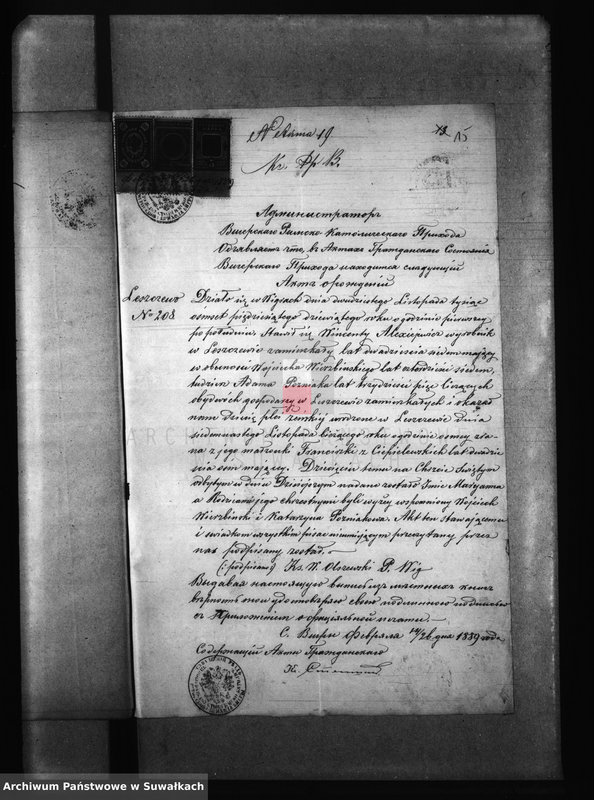 № Акта 19.
15
Администраторъ
Вигерскаго Римско-Католическаго Прихода
Объявляетъ что, въ Актахъ Гражданскаго Состоянія
Вигерскаго Прихода находится слѣдующій
Актъ о рожденіи
Leszczewo
№ 208
Działo się w Wigrach dnia dwudziestego Listopada tysiąc
osmset pięćdziesiątego dziewiątego roku o godzinie pierwszej
po południu Stawił się Wincenty Alexiejewicz wyrobnik
w Leszczewie zamieszkały lat dwadzieścia siedem mający
w obecności Wojciecha Wierzbińskiego lat siedem,
tudzież Adama Poźniaka lat trzydzieści pięć liczących
obydwóch gospodarzy w Leszczewie zamieszkałych i okazał
nam Dziecię płci żeńskiej urodzone w Leszczewie dnia
siedemnastego Listopada bieżącego roku o godzinie osmej z ra-
na z jego małżonki Franciszki z Ciepielewskich lat dwadzie
ścia osm mającej. Dziecięciu temu na Chrzcie Świętym
odbytym w dniu Dzisiejszym nadane zostało Imie Maryanna
a Rodzicami jego chrzestnymi byli wyżej wspomniony Wojciech
Wierzbiński i Katarzyna Poźniakowa. Akt ten stawającemu
i świadkom wszystkim pisać nieumiejącym przeczytany przez
nas podpisany został. —
(:podpisano) Ks. W. Olszewski P. Wig
Выдавая настоящую выпись изъ мѣстныхъ книгъ
вѣрность оной удостовѣряю своею подписью
съ Приложеніемъ оффиціальной печати. —
С. Вигры Февраля 14/26 дня 1889 года
Содержащій Акты Гражданскаго
Archiwum Państwowe w Suwałkach